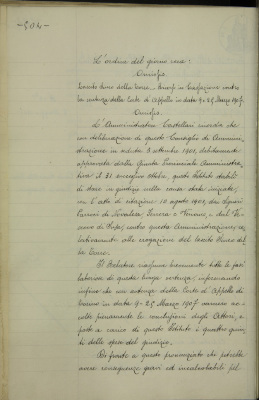 -504-
L'ordine del giorno reca:
Omissis.
Lascito Siro della Torre - Ricorso in Cassazione contro
la sentenza della Corte d'Appello in data 9-25 Marzo 1907.
Omissis.
L'Amministratore Castellari ricorda che
con deliberazione di questo Consiglio di Ammini-
strazione in seduta 3 settembre 1903, debitamente
approvata dalla Giunta Provinciale Amministra-
tiva il 31 successivo ottobre, questo Istituto
di stare in giudizio nella causa iniziata
con l'atto di citazione 10 agosto 1903, dai Signori
Parroci di Novalesa, Venaus e Ferrera, e dal Ve-
scovo di Susa, contro questa Amministrazione, re-
lativamente alla erogazione del lascito
la Torre.
Il Presidente riassume brevemente tutte le fasi
laboriose di questa lunga vertenza, informando
infine che con sentenza della Corte d'Appello di
Torino in data 9-25 Marzo 1907 vennero ac-
colte pienamente le conclusioni degli Attori, e
poste a carico di questo Istituto i quattro quin-
ti delle spese del giudizio.
Di fronte a questo pronunciato che potrebbe
avere conseguenze gravi ed incalcolabili pel